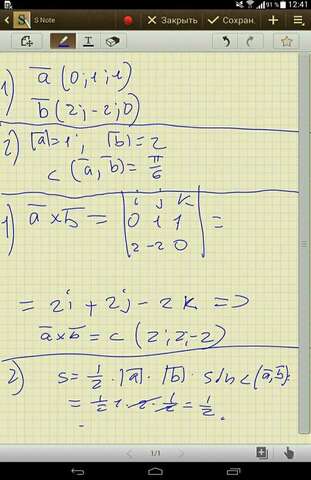 91% 12:41
S Note
Закрыть
Сохран.
1) a̅ (0; 1; 1)
b̅ (2; -2; 0)
2) |a̅|=1; |b̅|=2
c (a̅, b̅) = π/6
1) a̅ × b̅ = |i j k
0 1 1
2 -2 0| =
= 2i + 2j - 2k =>
a̅×b̅ = c (2; 2; -2)
2) S = 1/2 · |a̅| · |b̅| · sin c (a̅, b̅) =
= 1/2 · 1 · 2 · 1/2 = 1/2.
1/1